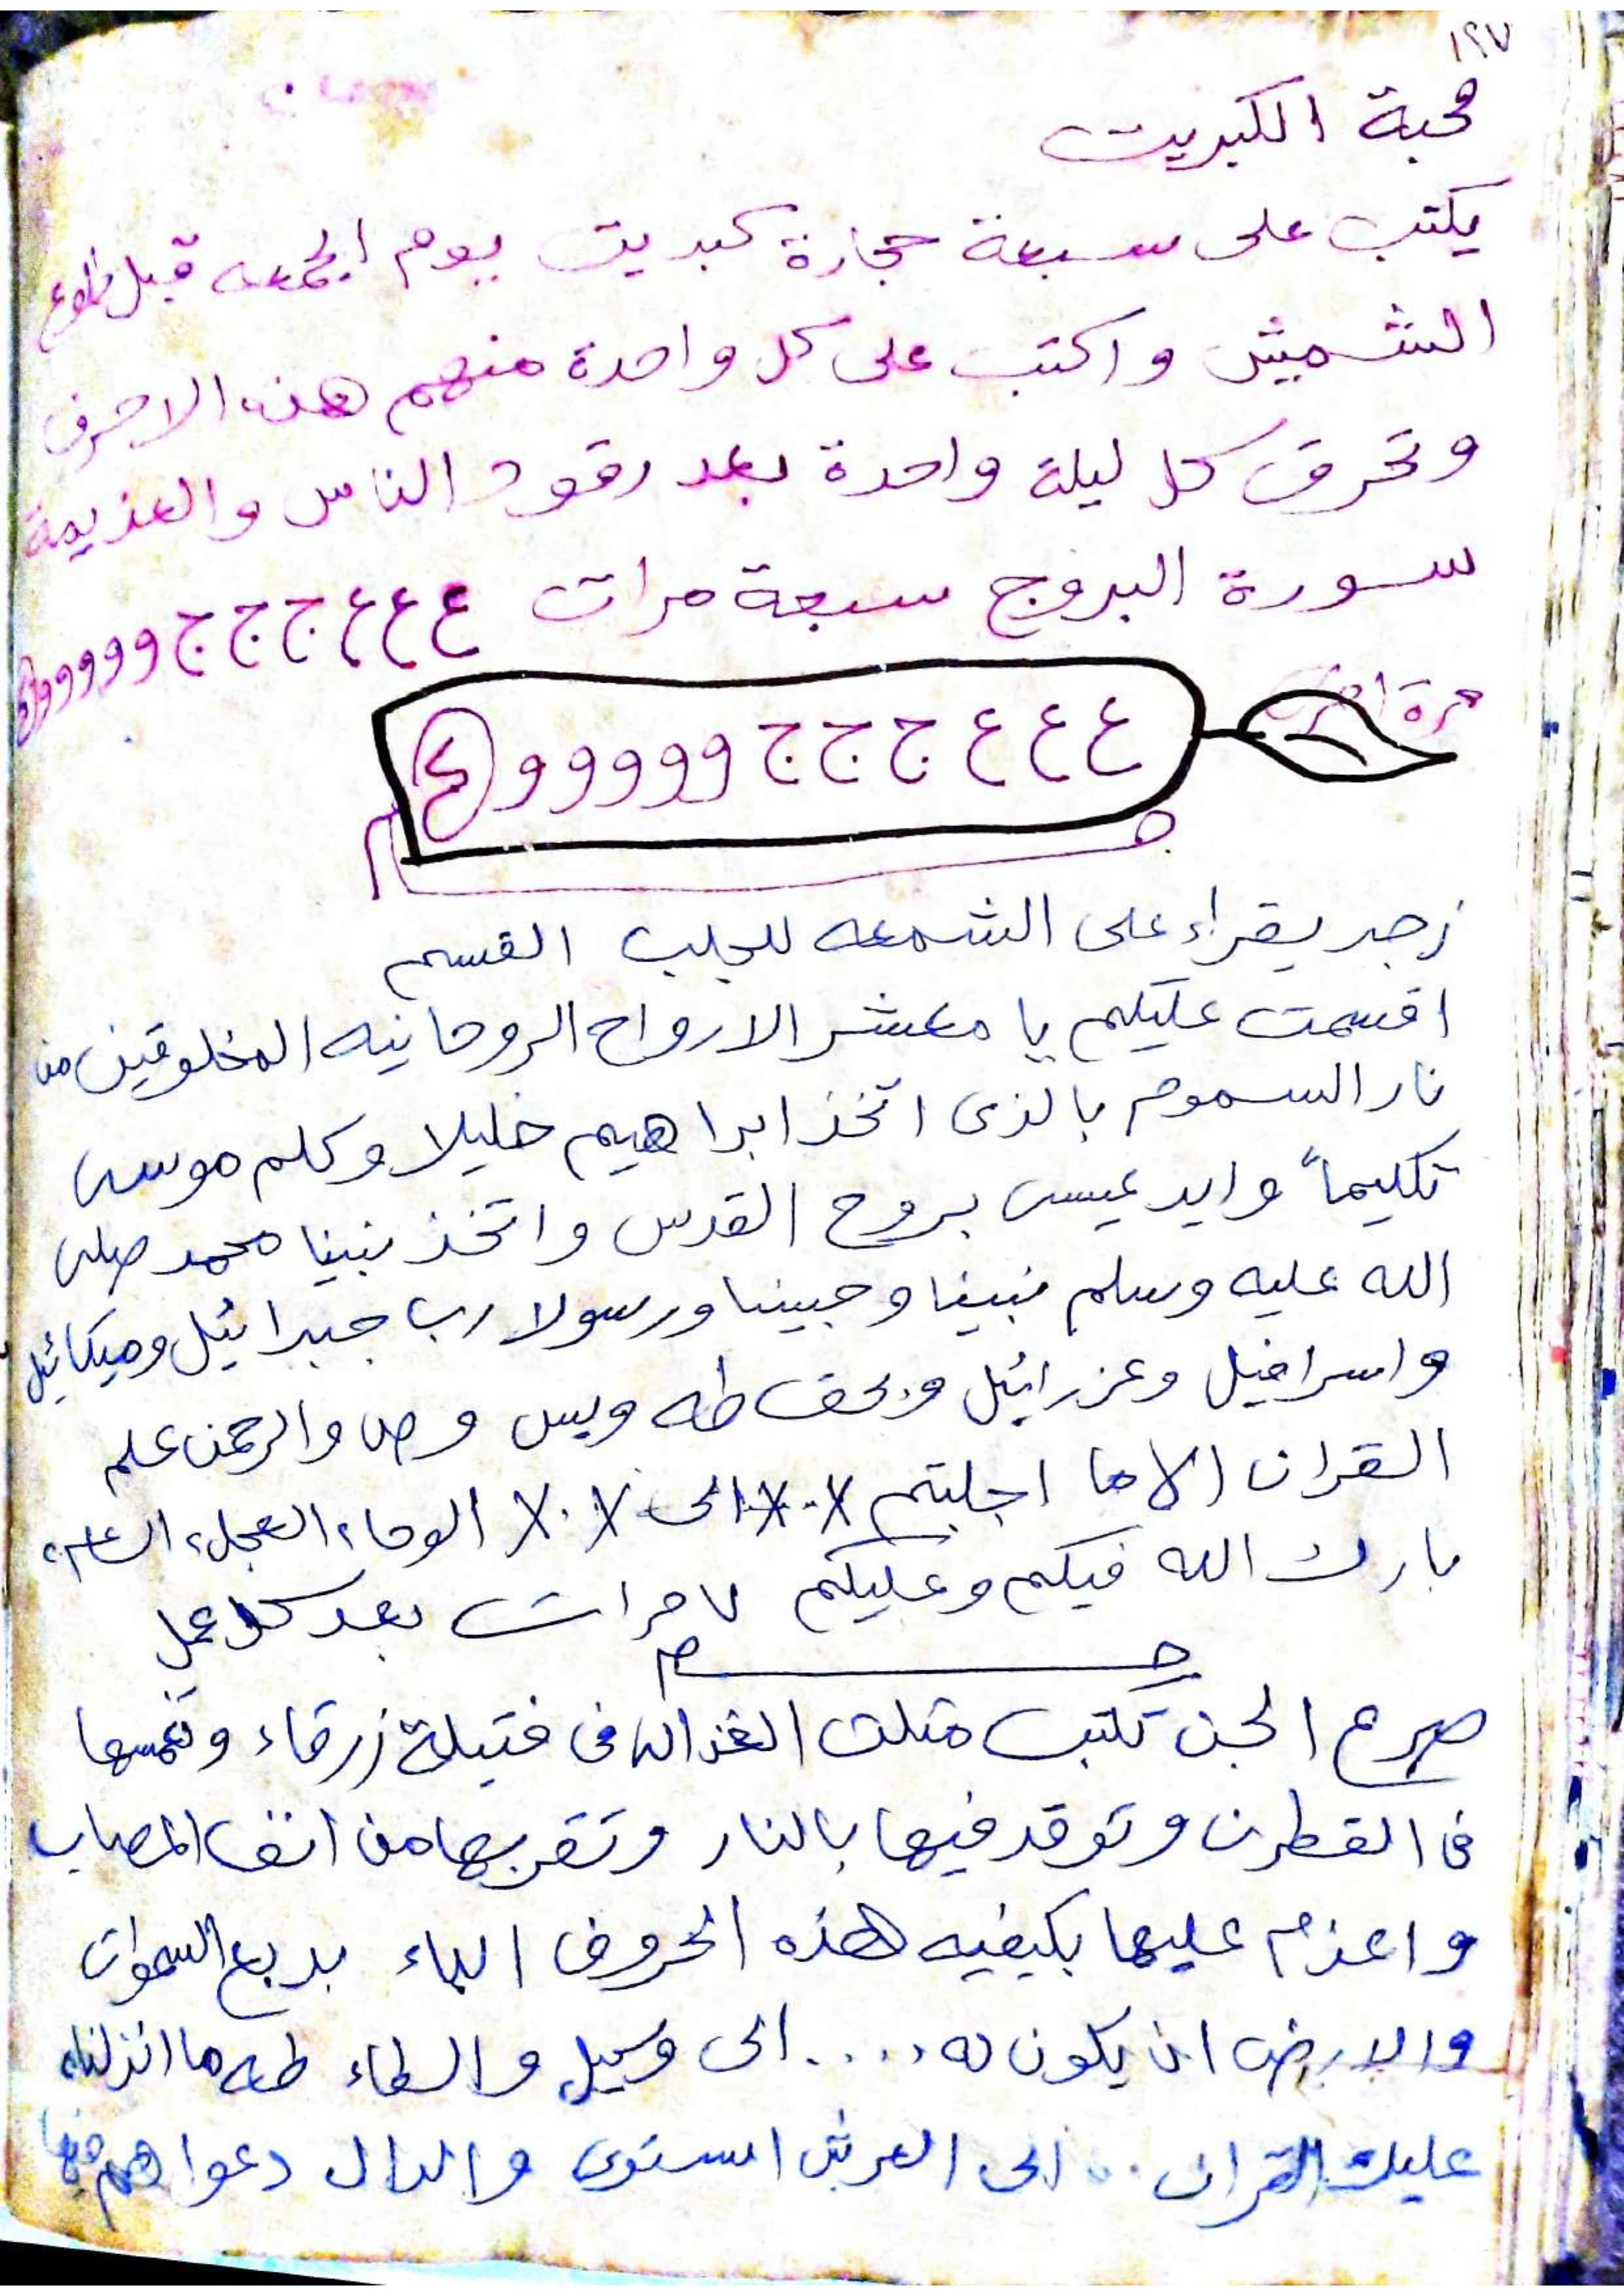 ١٩٧
محبة الكبريت
يكتب على سبعة حجارة كبديت يوم الجمعه قبل طلوع
الشميش واكتب على كل واحدة منهم هذه الاحرف
وتحرق كل ليلة واحدة بعد رقود الناس والعذيمة
سورة البروج سبعة مرات ع ع ع ع ج ج ج و و و و و
مرة اخرى
ع ع ع ع ج ج ج و و و و و
زجر يقراء على الشمعه للجلب القسم
اقسمت عليكم يا معشر الارواح الروحانيه المخلوقين من
نار السموم بالذى اتخذ ابراهيم خليلا وكلم موسى
تكليماً وايد عيسى بروح القدس واتخذ نبينا محمد صلى
الله عليه وسلم نبينا وحبينا ورسولا رب جبرائيل وميكائيل
واسرافيل وعزرائيل وبحق طه ويس وص والرحمن علم
القران الا ما اجلبتم X.X الى X.X الوحاء العجل، الساعه
بارك الله فيكم وعليكم ٧ مرات بعد كل عمل
صرع الجن تكتب مثلث الغذالى فى فتيلة زرقاء وتغمسها
فى القطرن وتوقد فيها بالنار وتقربها من انف المصاب
واعذم عليها بكيفيه هذه الحروف الباء بديع السموات
والارض ان يكون له .... الى وكيل والطاء طه ما انزلنا
عليك القران .. الى العرش استوى والدال دعواهم فيها